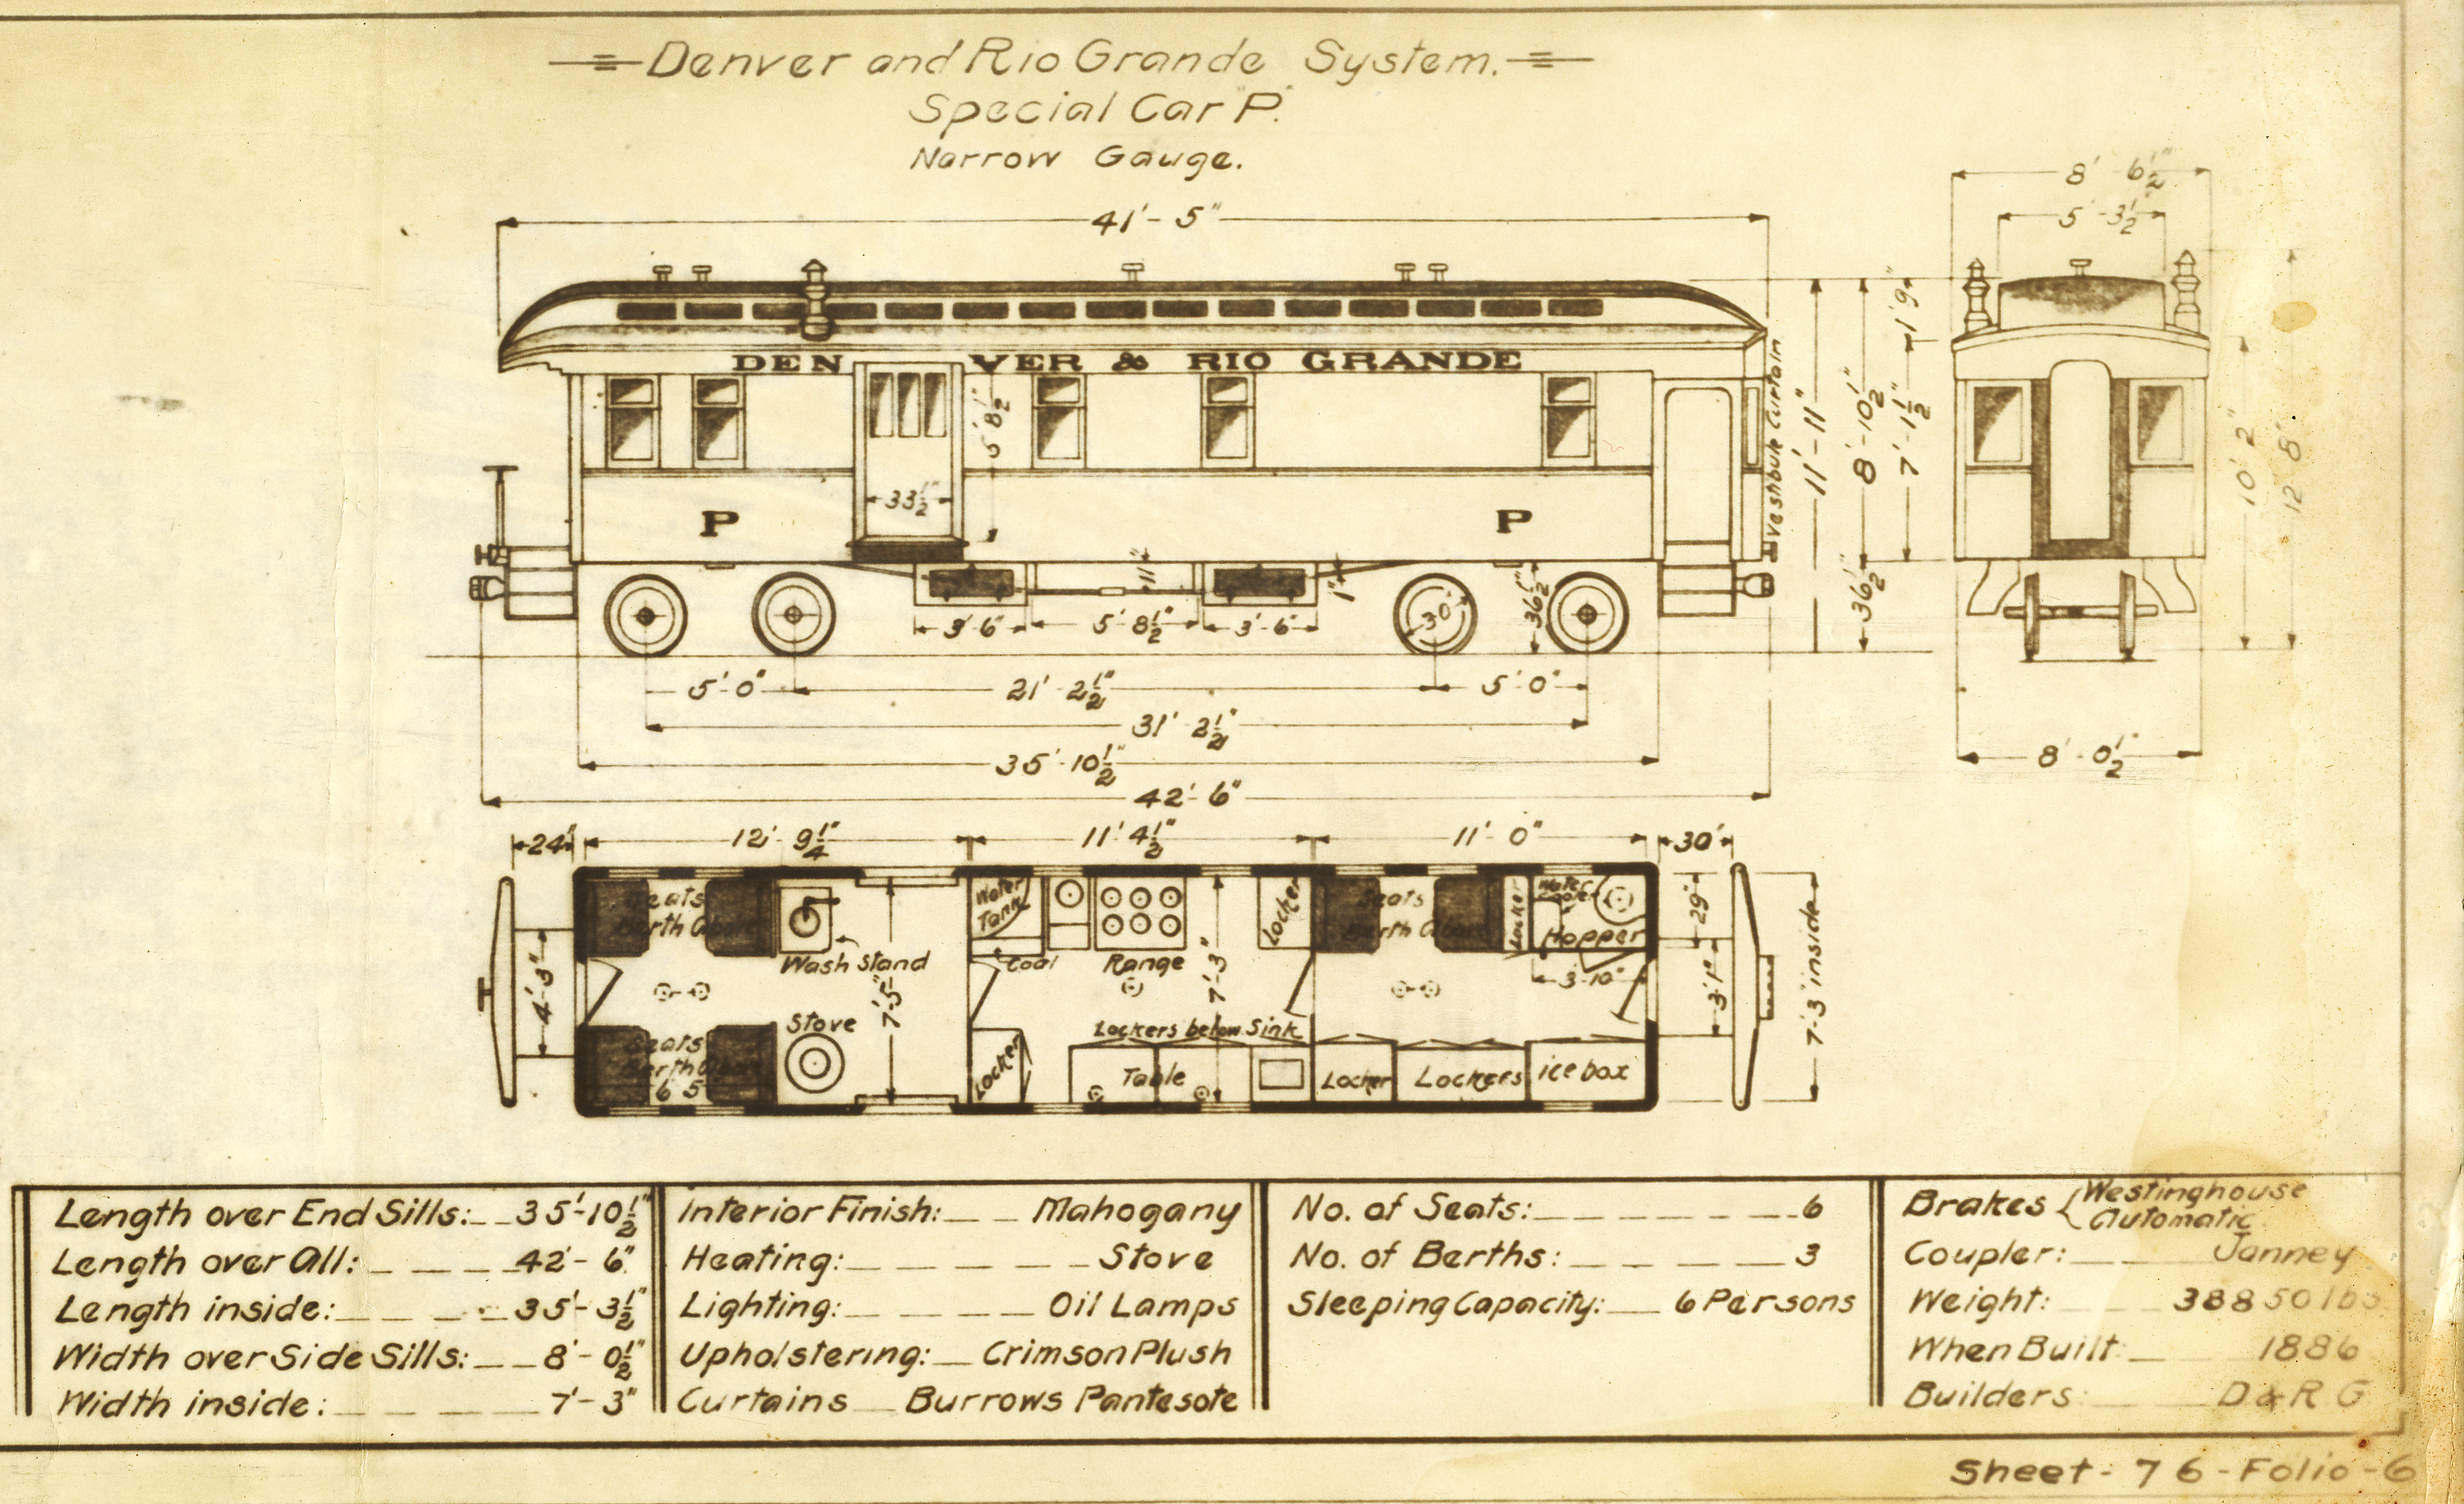 Denver and Rio Grande System.
Special Car "P."
Narrow Gauge.
8' 6½"
5'-3½"
41'-5"
DENVER & RIO GRANDE
5' 8½"
33½"
P P
Vestibule Curtain
11'-11"
8'-10½"
7'-1½"
1'9"
36½"
10' 2"
12' 8"
11"
1"
30"
36½"
3' 6" 5' 8½" 3'-6"
5'-0" 21' 2½" 5'-0"
31' 2½"
35'-10½"
42'-6"
8'-0½"
24" 12'-9¼" 11'-4½" 11'-0" 30"
Seats
Berth Above
Wash Stand
Water
Tank
Coal
Range
Locker
Seats
Berth Above
Locker
Water
Cooler
Hopper
3'-10"
29"
4'-3"
7'-5"
7'-3"
3'1"
7'-3" inside
Stove
Seats
Berth Above
6 5
Locker
Lockers below Sink
Table
Locker
Lockers
ice box
Length over End Sills: 35'-10½"
Length over All: 42'-6"
Length inside: 35'-3½"
Width over Side Sills: 8'-0½"
Width inside: 7'-3"
Interior Finish: Mahogany
Heating: Stove
Lighting: Oil Lamps
Upholstering: Crimson Plush
Curtains Burrows Pantesote
No. of Seats: 6
No. of Berths: 3
Sleeping Capacity: 6 Persons
Brakes { Westinghouse
Automatic
Coupler: Janney
Weight: 38850 lbs
When Built 1886
Builders D & R G
Sheet-76-Folio-6